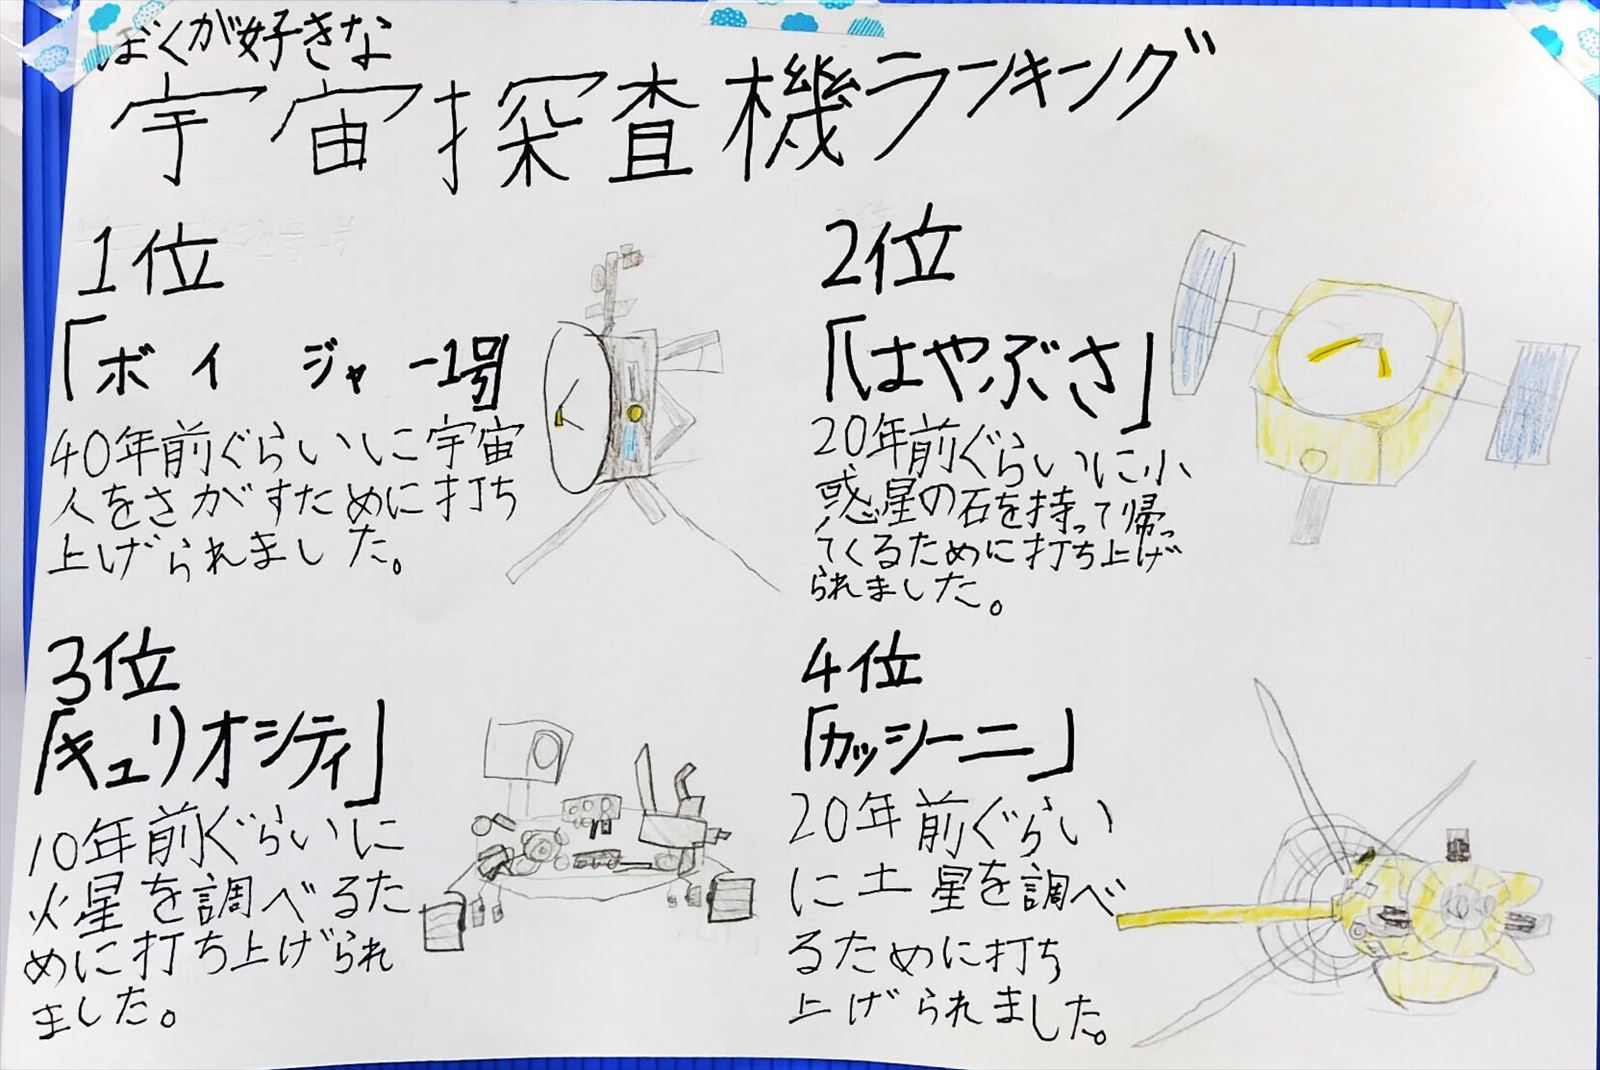 ぼくが好きな
宇宙探査機ランキング
1位
「ボイジャー1号」
40年前ぐらいに宇宙
人をさがすために打ち
上げられました。
2位
「はやぶさ」
20年前ぐらいに小
惑星の石を持って帰っ
てくるために打ち上げ
られました。
3位
「キュリオシティ」
10年前ぐらいに
火星を調べるた
めに打ち上げられ
ました。
4位
「カッシーニ」
20年前ぐらい
に土星を調べ
るために打ち
上げられました。